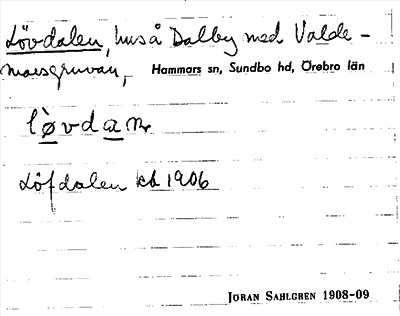 Lövdalen, hus å Dalby med Valde-
marsgruvan, Hammars sn, Sundbo hd, Örebro län
Löfdalen kb 1906
JÖRAN SAHLGREN 1908-09